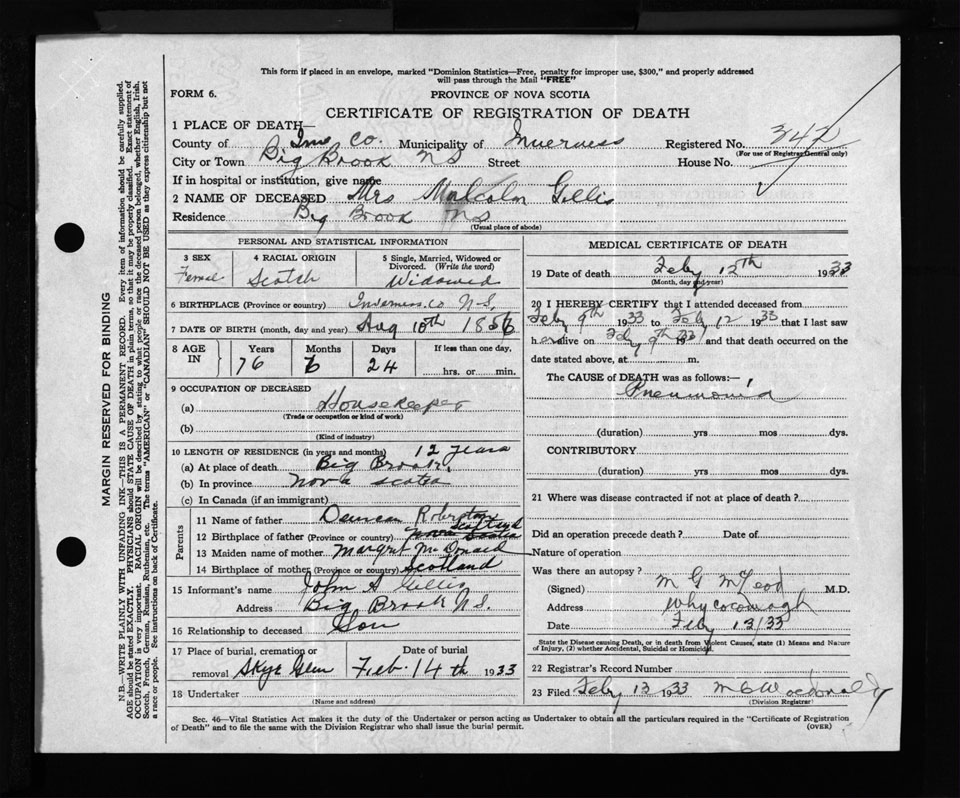 This form if placed in an envelope, marked "Dominion Statistics—Free, penalty for improper use, $300," and properly addressed
will pass through the Mail "FREE"
FORM 6. PROVINCE OF NOVA SCOTIA
CERTIFICATE OF REGISTRATION OF DEATH
1 PLACE OF DEATH—
County of Inv Co. Municipality of Inverness Registered No. 347
(For use of Registrar General only)
City or Town Big Brook NS Street House No.
If in hospital or institution, give name
2 NAME OF DECEASED Mrs Malcolm Gillis
Residence Big Brook NS
(Usual place of abode)
PERSONAL AND STATISTICAL INFORMATION
3 SEX 4 RACIAL ORIGIN 5 Single, Married, Widowed or Divorced. (Write the word)
Female Scotch Widowed
6 BIRTHPLACE (Province or country) Inverness. Co N-S
7 DATE OF BIRTH (month, day and year) Aug 10th 1856
8 AGE IN Years Months Days If less than one day,
76 6 24 hrs. or min.
9 OCCUPATION OF DECEASED
(a) Housekeeper
(Trade or occupation or kind of work)
(b)
(Kind of industry)
10 LENGTH OF RESIDENCE (in years and months) 12 years
(a) At place of death Big Brook
(b) In province Nova Scotia
(c) In Canada (if an immigrant)
Parents
11 Name of father Duncan Robertson
12 Birthplace of father (Province or country) Nova Scotia Scotland
13 Maiden name of mother Margret McDonald
14 Birthplace of mother (Province or country) Scotland
15 Informant's name John A Gillis
Address Big Brook N.S.
16 Relationship to deceased Son
17 Place of burial, cremation or removal Skye Glen Date of burial Feb 14th 1933
18 Undertaker
(Name and address)
MEDICAL CERTIFICATE OF DEATH
19 Date of death Feby 12th 1933
(Month, day and year)
20 I HEREBY CERTIFY that I attended deceased from
Feby 9th 1933 to Feby 12 1933 that I last saw
her alive on Feby 9th 33 and that death occurred on the
date stated above, at m.
The CAUSE of DEATH was as follows:—
Pneumonia
(duration) yrs mos dys.
CONTRIBUTORY
(duration) yrs mos dys.
21 Where was disease contracted if not at place of death?
Did an operation precede death? Date of
Nature of operation
Was there an autopsy?
(Signed) M G McLeod M.D.
Address Whycocomagh
Date Feby 13/33
State the Disease causing Death, or in death from Violent Causes, state (1) Means and Nature
of Injury, (2) whether Accidental, Suicidal or Homicidal.
22 Registrar's Record Number
23 Filed Feby 13 1933 Macdonald
(Division Registrar)
Sec. 46—Vital Statistics Act makes it the duty of the Undertaker or person acting as Undertaker to obtain all the particulars required in the "Certificate of Registration
of Death" and to file the same with the Division Registrar who shall issue the burial permit. (OVER)
MARGIN RESERVED FOR BINDING
N.B.—WRITE PLAINLY WITH UNFADING INK—THIS IS A PERMANENT RECORD. Every item of information should be carefully supplied.
AGE should be stated EXACTLY. PHYSICIANS should STATE CAUSE OF DEATH in plain terms, so that it may be properly classified. Exact statement of
OCCUPATION is very important. RACIAL ORIGIN will be described by stating to what people or race the deceased person belonged, whether English, Irish,
Scotch, French, German, Russian, Ruthenian, etc. The terms "AMERICAN" or "CANADIAN" SHOULD NOT BE USED as they express citizenship but not
a race or people. See instructions on back of Certificate.